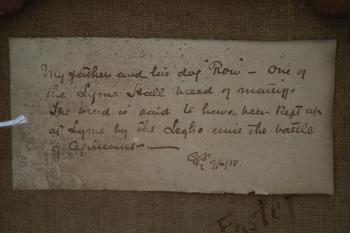 My father and his dog "Row" – One of
the Lyme Hall breed of mastiffs
The breed is said to have been kept up
at Lyme by the Leghs since the battle
of Agincourt –
9/6/18.